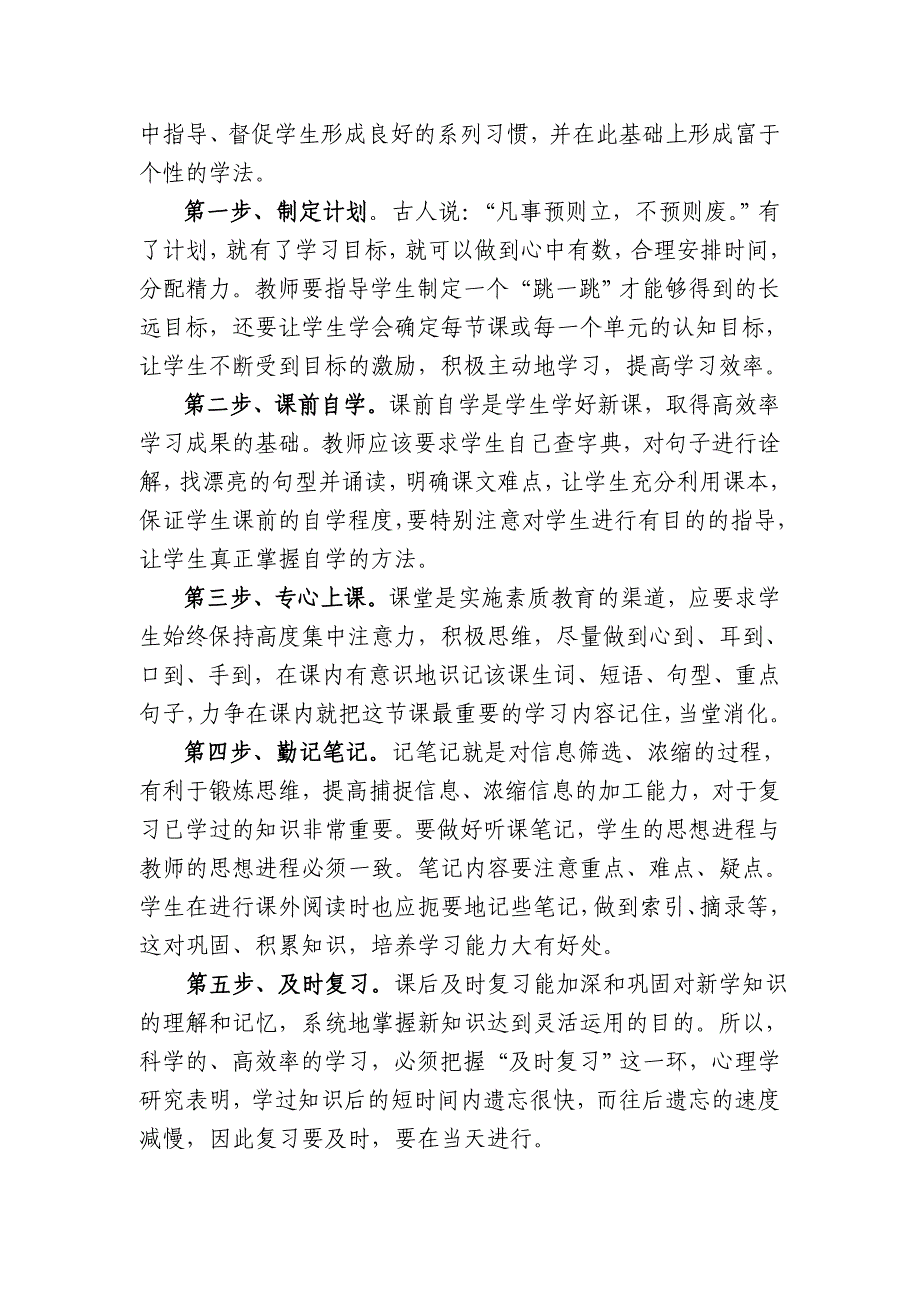 中指导、督促学生形成良好的系列习惯，并在此基础上形成富于
个性的学法。
第一步、制定计划。古人说：“凡事预则立，不预则废。”有
了计划，就有了学习目标，就可以做到心中有数，合理安排时间，
分配精力。教师要指导学生制定一个“跳一跳”才能够得到的长
远目标，还要让学生学会确定每节课或每一个单元的认知目标，
让学生不断受到目标的激励，积极主动地学习，提高学习效率。
第二步、课前自学。课前自学是学生学好新课，取得高效率
学习成果的基础。教师应该要求学生自己查字典，对句子进行诠
解，找漂亮的句型并诵读，明确课文难点，让学生充分利用课本，
保证学生课前的自学程度，要特别注意对学生进行有目的的指导，
让学生真正掌握自学的方法。
第三步、专心上课。课堂是实施素质教育的渠道，应要求学
生始终保持高度集中注意力，积极思维，尽量做到心到、耳到、
口到、手到，在课内有意识地识记该课生词、短语、句型、重点
句子，力争在课内就把这节课最重要的学习内容记住，当堂消化。
第四步、勤记笔记。记笔记就是对信息筛选、浓缩的过程，
有利于锻炼思维，提高捕捉信息、浓缩信息的加工能力，对于复
习已学过的知识非常重要。要做好听课笔记，学生的思想进程与
教师的思想进程必须一致。笔记内容要注意重点、难点、疑点。
学生在进行课外阅读时也应扼要地记些笔记，做到索引、摘录等，
这对巩固、积累知识，培养学习能力大有好处。
第五步、及时复习。课后及时复习能加深和巩固对新学知识
的理解和记忆，系统地掌握新知识达到灵活运用的目的。所以，
科学的、高效率的学习，必须把握“及时复习”这一环，心理学
研究表明，学过知识后的短时间内遗忘很快，而往后遗忘的速度
减慢，因此复习要及时，要在当天进行。